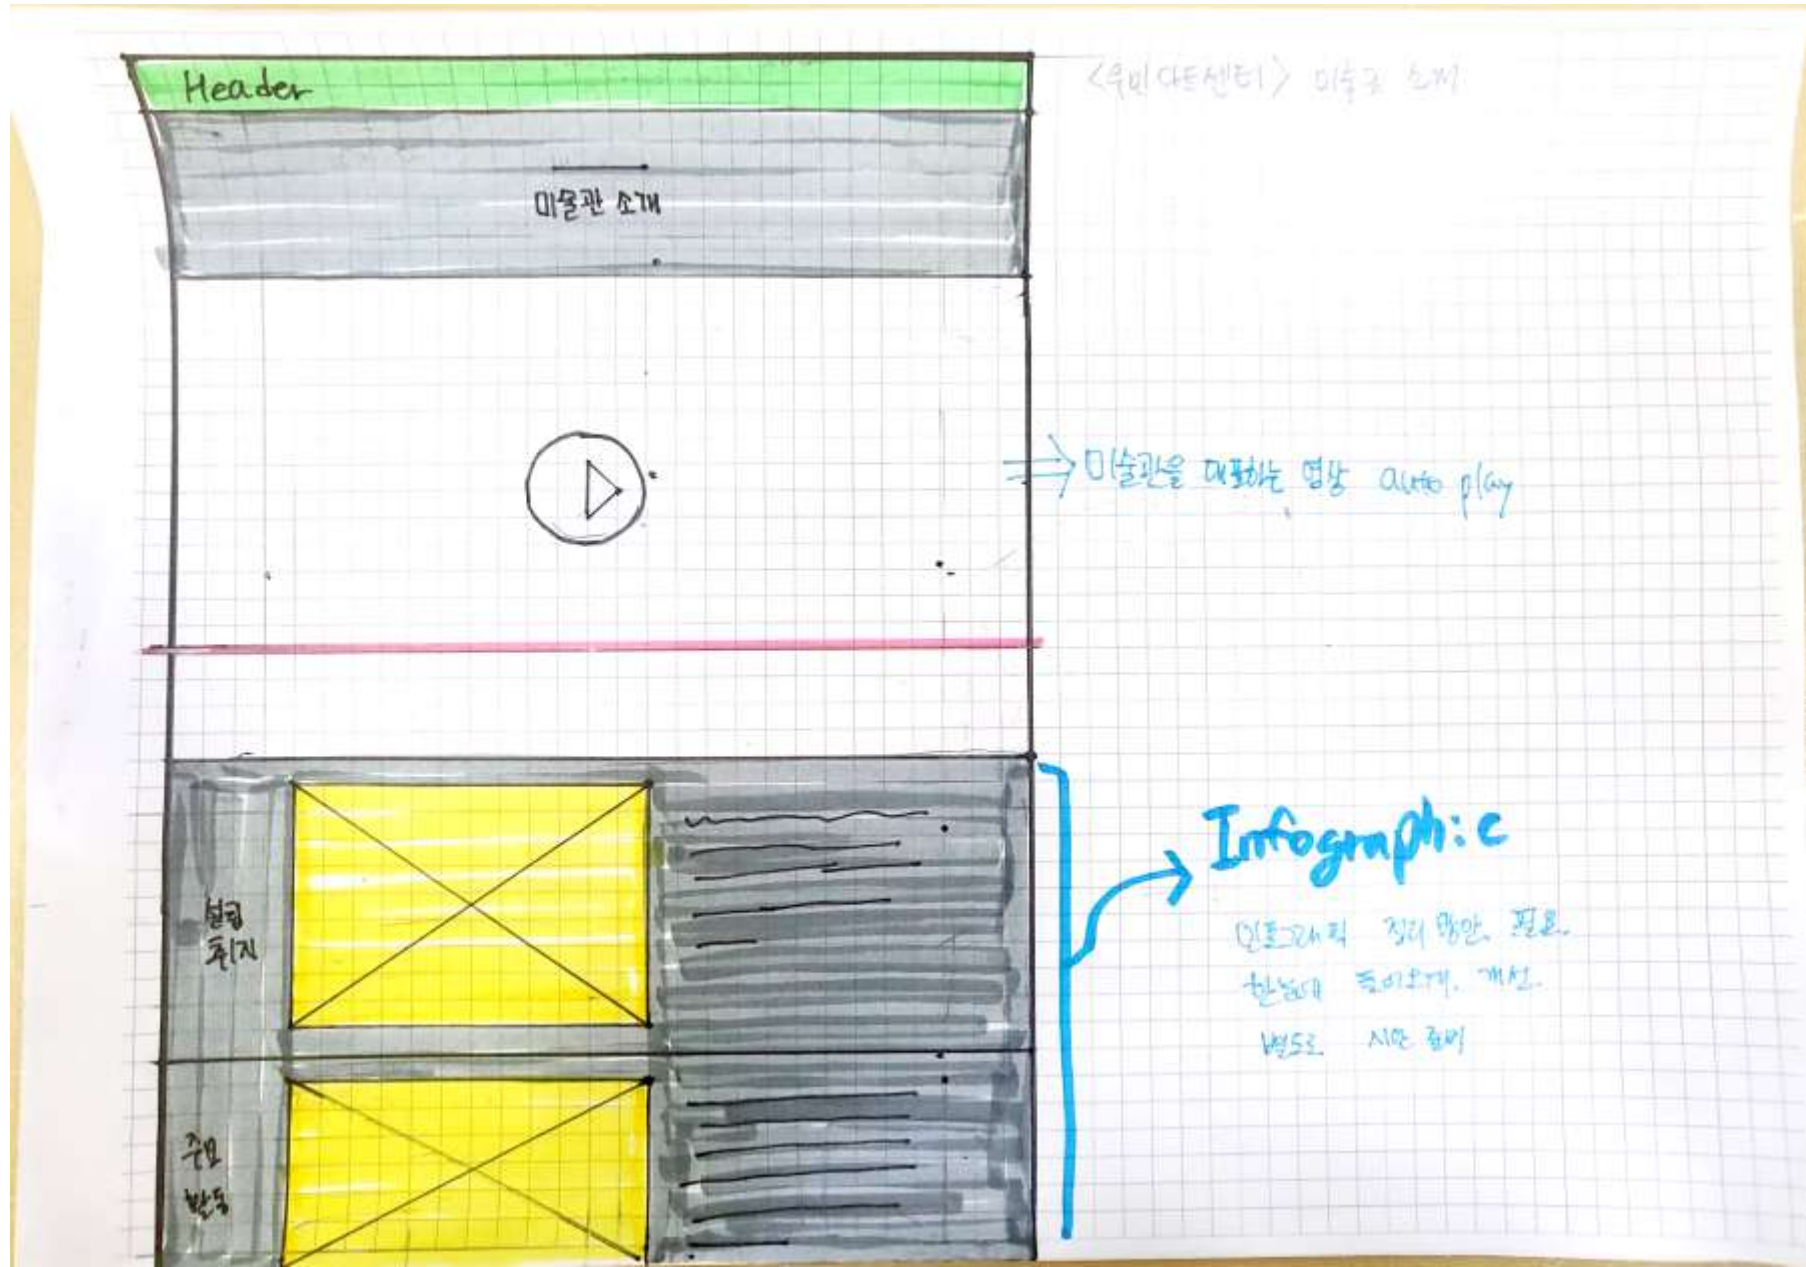 Header
미술관 소개
미술관 소개
미술관을 대표하는 영상 auto play
설립
취지
Infographic
인포그래픽 정리 방안 필요.
한눈에 들어오게. 개선.
별도로 시안 준비
주요
활동